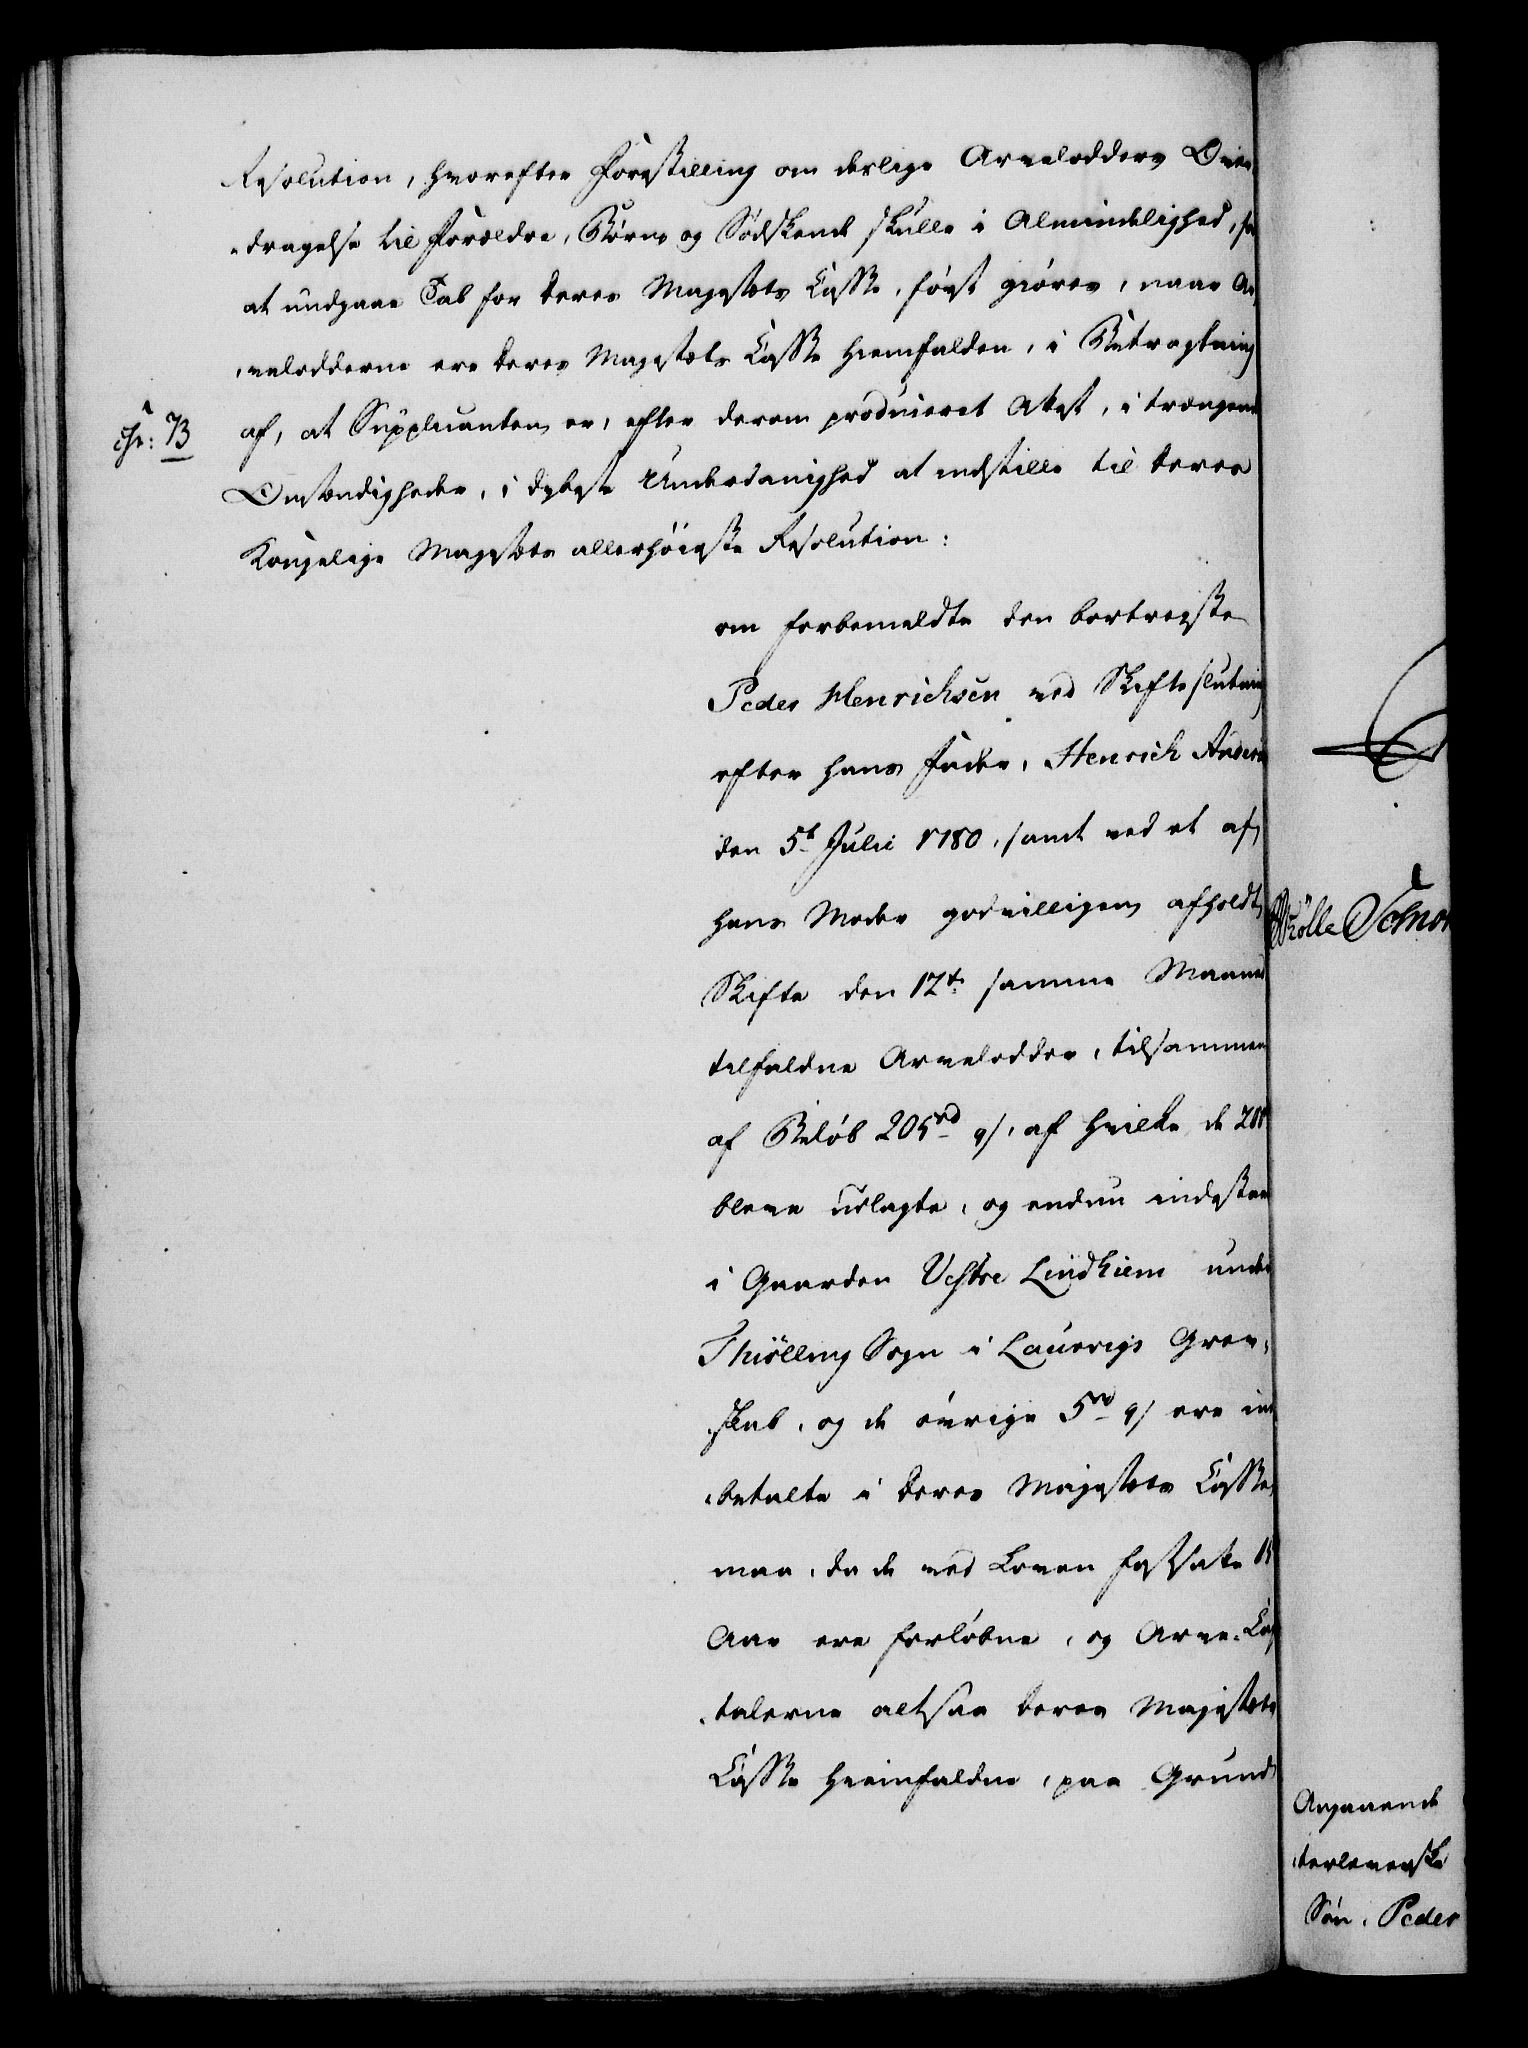 Resolution, hvorefter Forestilling om deslige Arvelodders Over
-dragelse til Forældre, Børn og Sødskende skulle i Almindelighed, for
at undgaae Tab for Deres Majestæts Casse, først giøres, naar Ar
-velodderne ere Deres Majestæts Casse hiemfalden, i Betragtning
af, at Supplicanten er, efter derom produceret Attest, i trængende
Omstændigheder, i dybeste Underdanighed at indstille til Deres
Kongelige Majestæts allerhøieste Resolution:
om forbemeldte den bortreiste
Peder Henrichsen ved Skifteslutning
efter hans Fader, Henrich Anders
den 5t Julii 1780, samt ved et af
hans Moder godvilligen afholdt
Skifte den 12t samme Maaned
tilfaldne Arvelodder, tilsammen
af Beløb 205rd, af hvilke de 200
bleve udlagte, og endnu indestaae
i Gaarden Vestre Lindhiem under
Thiølling Sogn i Laurvigs Grev-
-skab, og de øvrige 5rd ere ind
-betalte i Deres Majestæts Casse,
maa, da de ved Loven fastsatte 15
Aar ere forløbne, og Arve-Cap
-talerne altsaa Deres Majestæts
Casse hiemfaldne, paa Grund
Angaaende
Søn, Peder